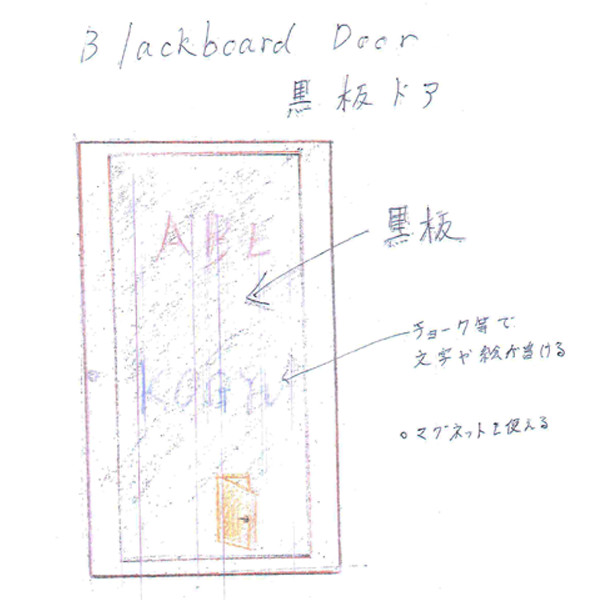 Blackboard Door
黒板ドア
ABC
黒板
チョーク等で
文字や絵が書ける
○マグネットも使える